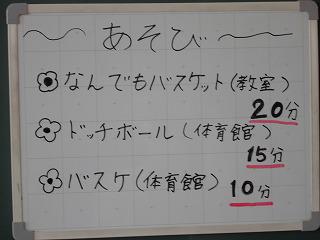 ～あそび～
なんでもバスケット(教室)
20分
ドッチボール(体育館)
15分
バスケ(体育館)
10分